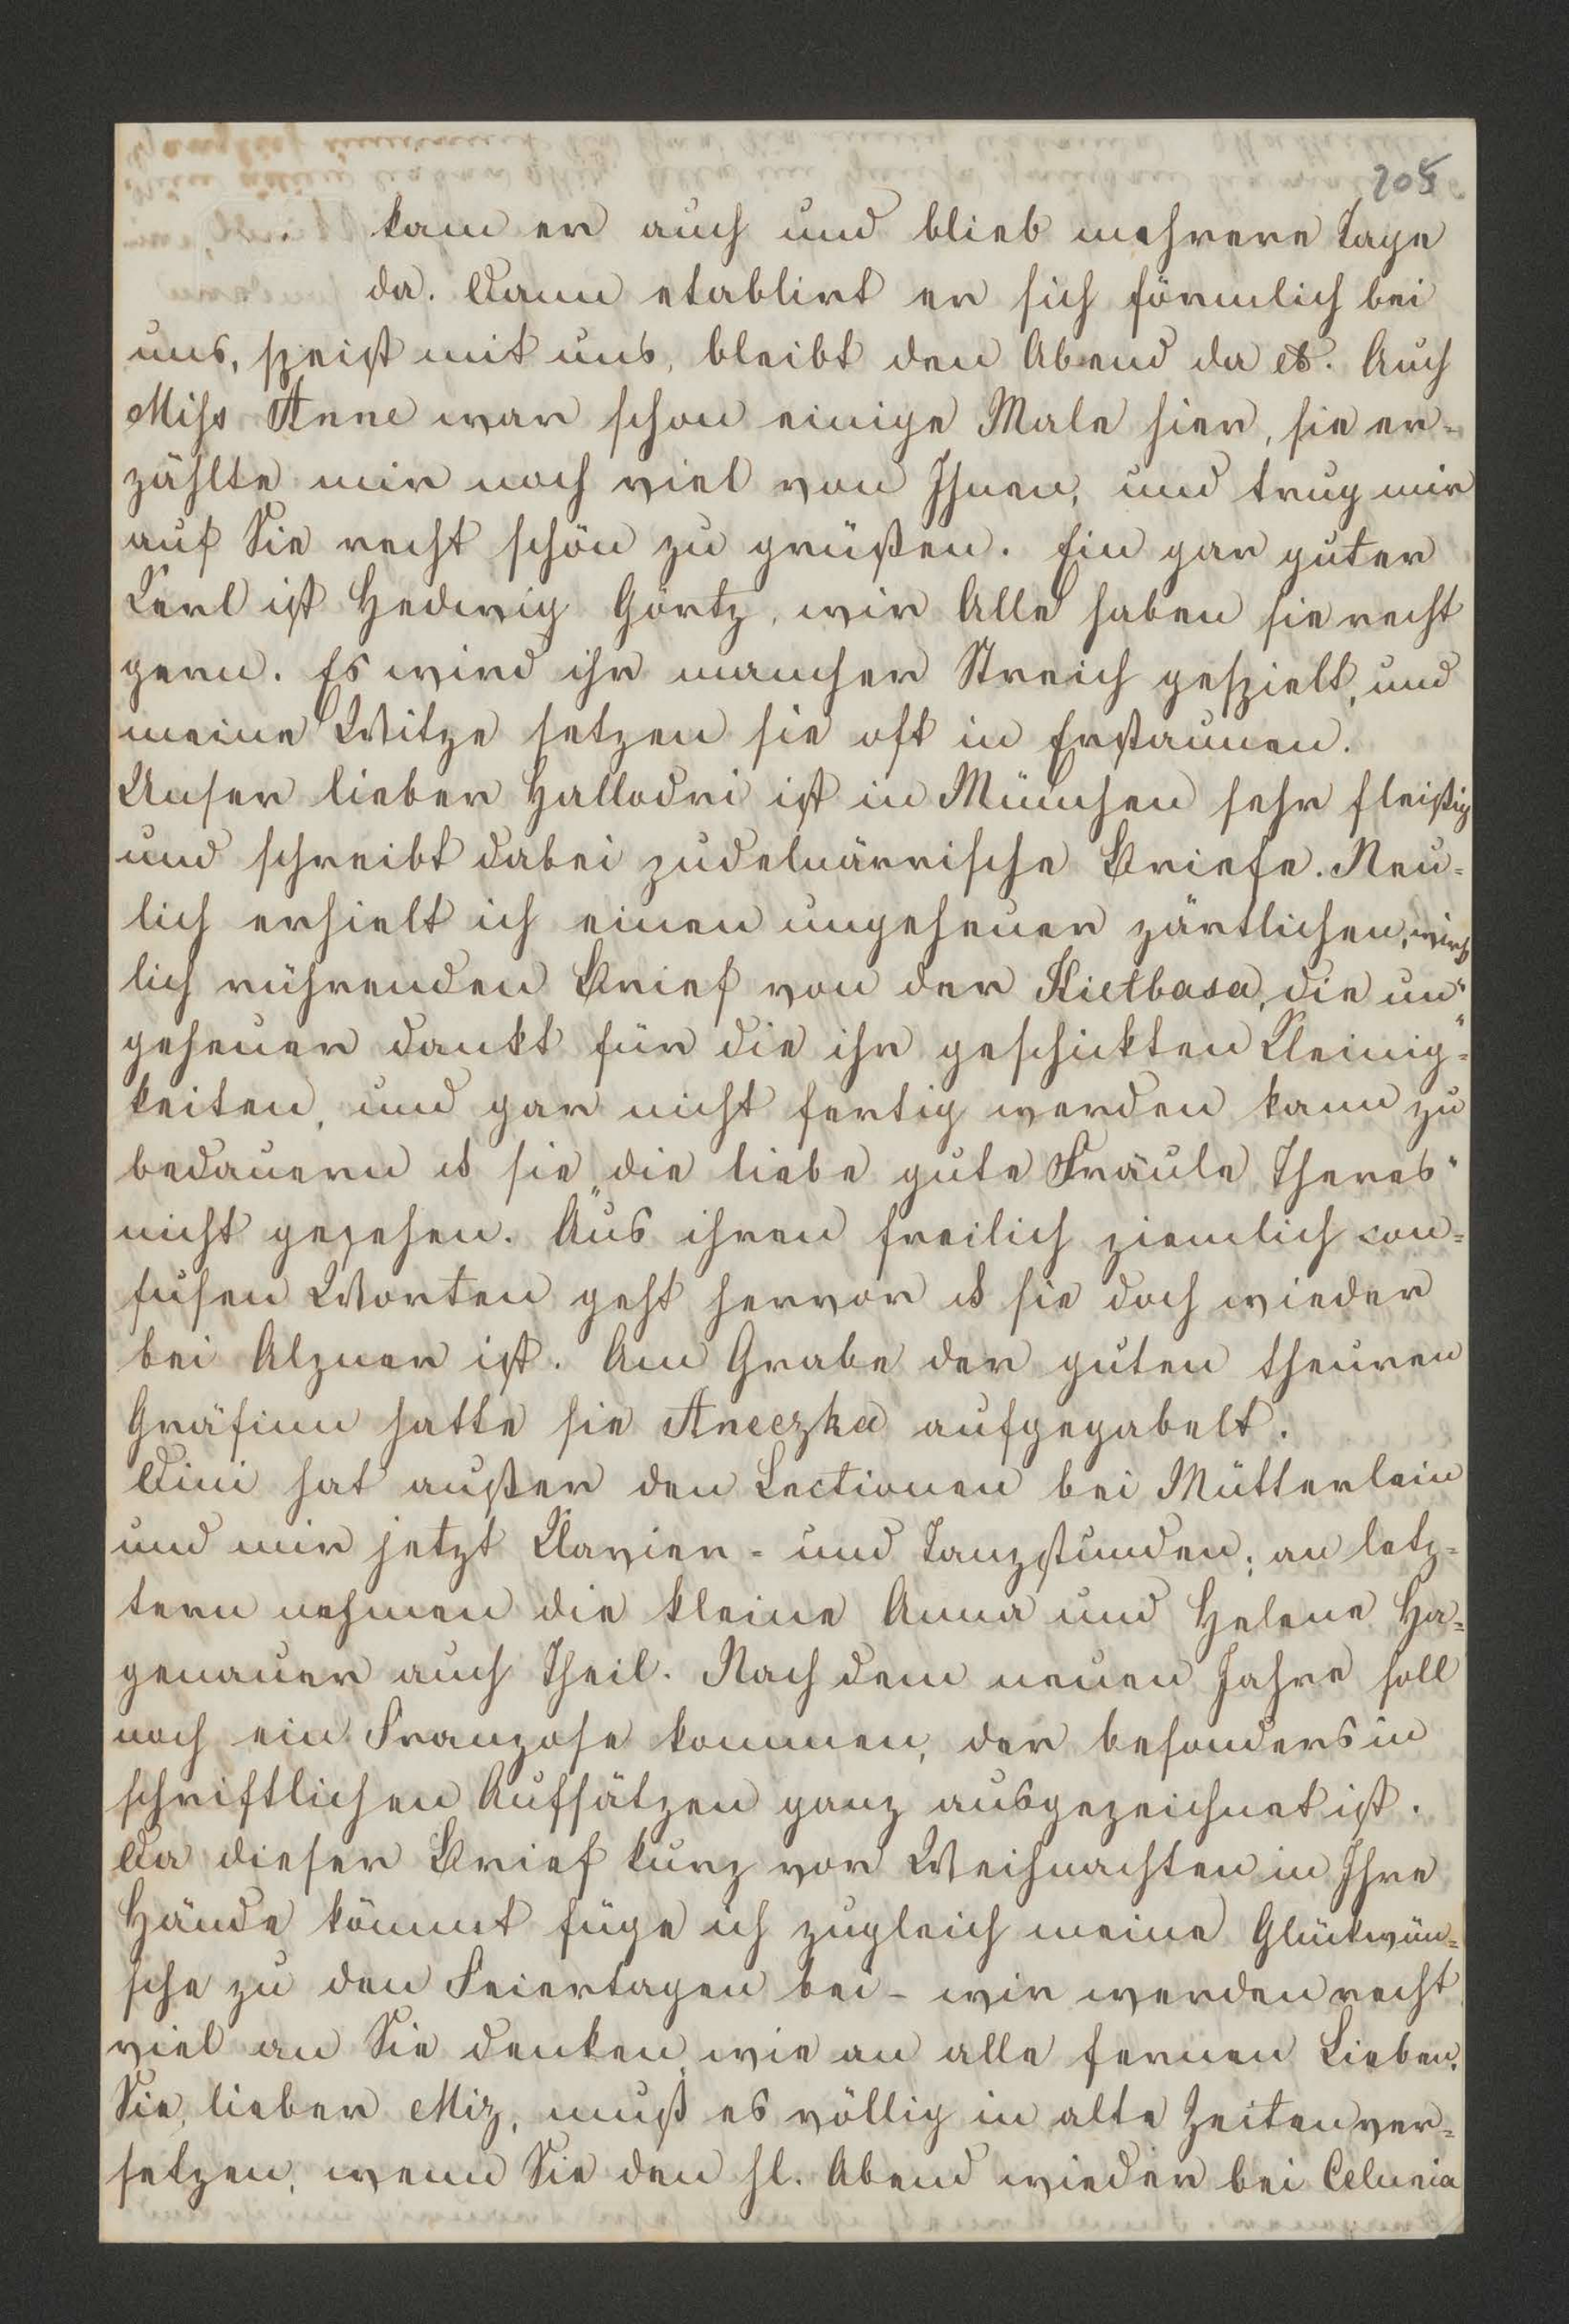 205
kam er auch und blieb mehrere Tage
da. Dann etablirt er sich förmlich bei
uns, speist mit uns, bleibt den Abend da etc. Auch
Miss Anne war schon einige Male hier, sie er=
zählte mir noch viel von Ihnen, und trug mir
auf Sie recht schön zu grüßen. Ein gar guter
Kerl ist Hedwig Görtz, wir Alle haben sie recht
gern. Es wird ihr mancher Streich gespielt, und
meine Witze setzen sie oft in Erstaunen.
Unser lieber Hallodri ist in München sehr fleißig
und schreibt dabei zudelnärrische Briefe. Neu=
lich erhielt ich einen ungeheuer zärtlichen, wirk
lich rührenden Brief von der Kietbasa, die un"
geheuer dankt für die ihr geschickten Kleinig=
keiten, und gar nicht fertig werden kann zu
bedauern ds sie „die liebe gute Fräule Theres"
nicht gesehen. Aus ihren freilich ziemlich con=
fusen Worten geht hervor ds sie doch wieder
bei Alzner ist. Am Grabe der guten theuren
Gräfinn hatte sie Aneczka aufgegabelt.
Dini hat außer den Lectionen bei Mütterlein
und mir jetzt Klavier- und Tanzstunden; an letz=
tern nehmen die kleine Anna und Helene Ha=
genauer auch Theil. Nach dem neuen Jahre soll
noch ein Franzose kommen, der besonders in
schriftlichen Aufsätzen ganz ausgezeichnet ist.
Da dieser Brief kurz vor Weihnachten in Ihre
Hände kömmt füge ich zugleich meine Glückwün=
sche zu den Feiertagen bei - wir werden recht
viel an Sie denken, wie an alle fernen Lieben.
Sie, lieber Miz, muß es völlig in alte Zeiten ver=
setzen, wenn Sie den hl. Abend wieder bei Celunia